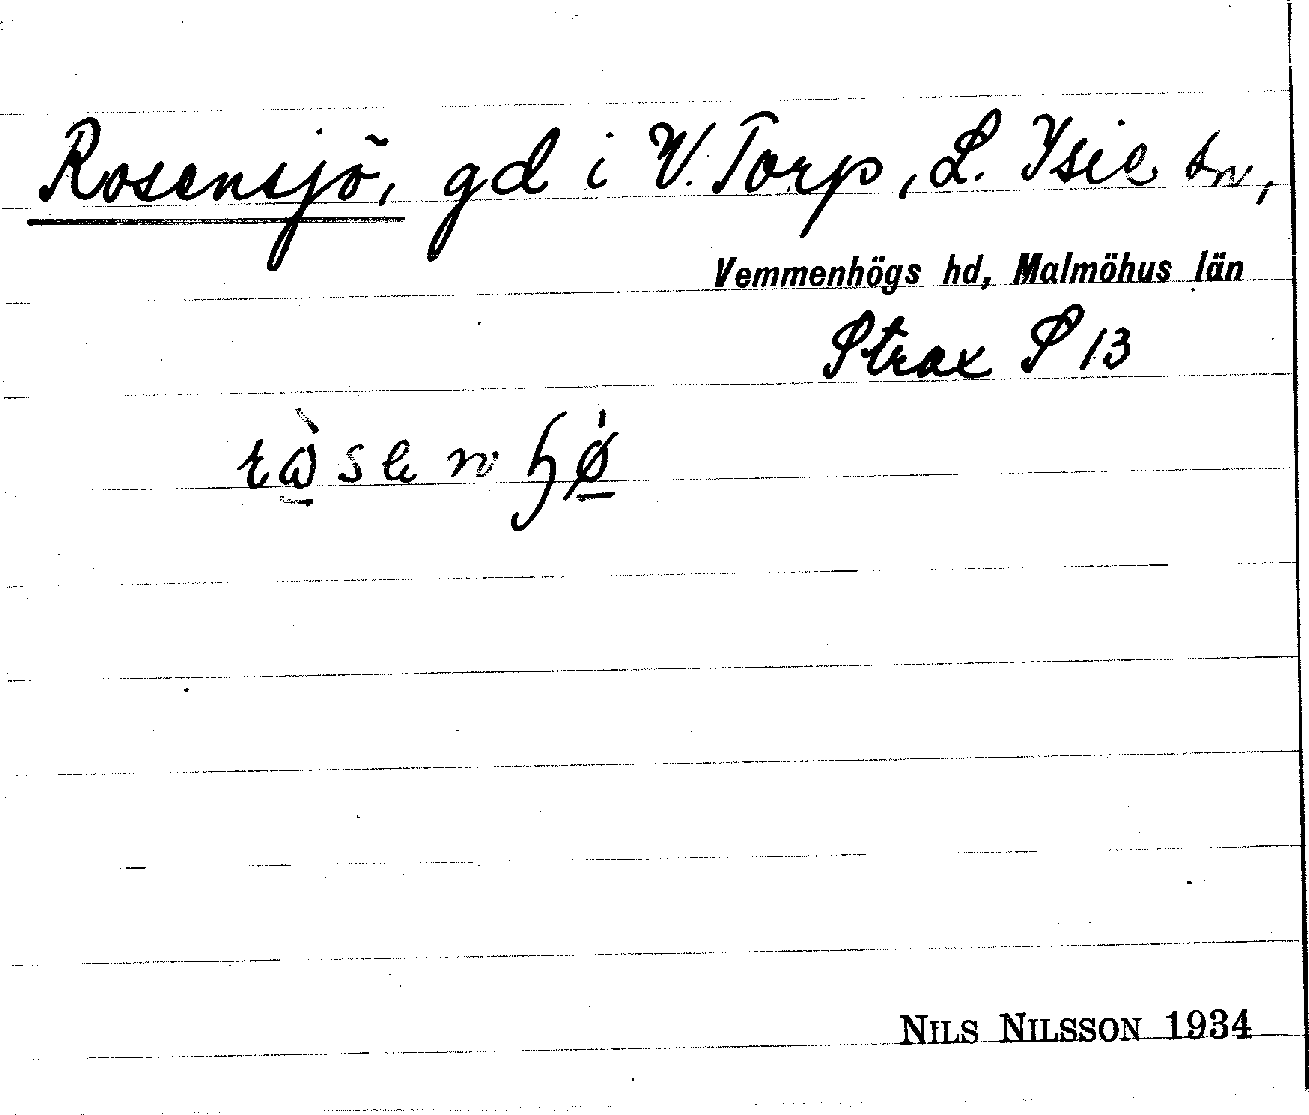 Rosensjö, gd i V. Torp, L. Isie sn,
Vemmenhögs hd, Malmöhus län
Strax S 13
Nils Nilsson 1934